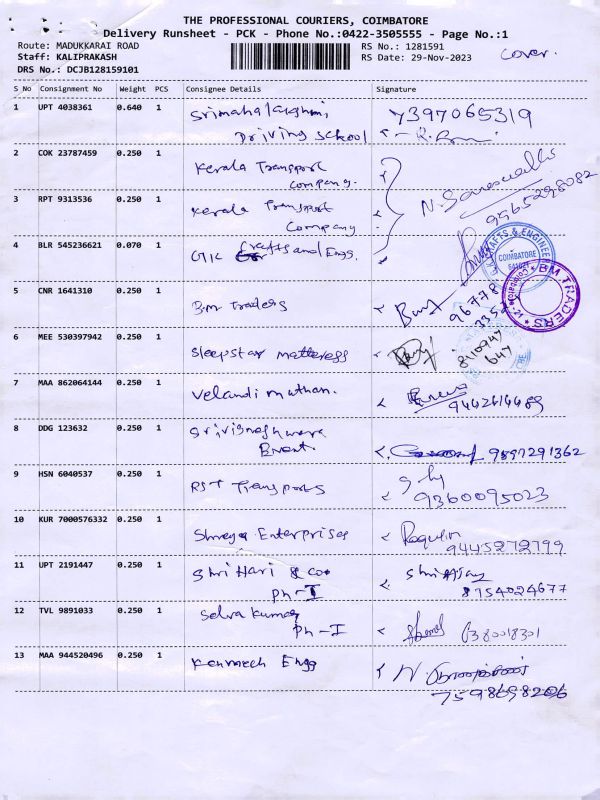 THE PROFESSIONAL COURIERS, COIMBATORE
Delivery Runsheet - PCK - Phone No.:0422-3505555 - Page No.:1
Route: MADUKKARAI ROAD
RS No.: 1281591
Staff: KALIPRAKASH
RS Date: 29-Nov-2023
Cover.
DRS No.: DCJB128159101
S No Consignment No Weight PCS Consignee Details Signature
1 UPT 4038361 0.640 1 Srimahalakshmi, 7397065319
Driving School
2 COK 23787459 0.250 1 Kerala Transport
Company.
3 RPT 9313536 0.250 1 Kerala Transport
Company
N. Saraswathi
9565298082
4 BLR 545236621 0.070 1 GTK Crafts and Engg.
CRAFTS & ENGINEE
COIMBATORE
5 CNR 1641310 0.250 1 Bm Traders
96778
BM TRADERS
6 MEE 530397942 0.250 1 Sleepstar matteress
8110947
647
7 MAA 862064144 0.250 1 Velandi muthan.
9442614489
8 DDG 123632 0.250 1 Srivigneshwara
Event. 9597291362
9 HSN 6040537 0.250 1 RST Transports
9360095023
10 KUR 7000576332 0.250 1 Shreya Enterprises
9445272799
11 UPT 2191447 0.250 1 Shri Hari & co
Ph-I 8754024677
12 TVL 9891033 0.250 1 Selva Kumar
Ph-I 6380018301
13 MAA 944520496 0.250 1 Kenmech Engg
7598698206